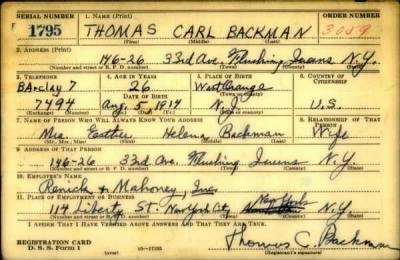 SERIAL NUMBER 1. NAME (Print) ORDER NUMBER
1795 THOMAS CARL BACKMAN 3059
(First) (Middle) (Last)
2. ADDRESS (Print)
146-26 33rd Ave. Flushing Queens N.Y.
(Number and street or R. F. D. number) (Town) (County) (State)
3. TELEPHONE 4. AGE IN YEARS 5. PLACE OF BIRTH 6. COUNTRY OF CITIZENSHIP
BArclay 7 26 West Orange
DATE OF BIRTH (Town or county)
7494 Aug. 5, 1914 N.J. U.S.
(Exchange) (Number) (Mo.) (Day) (Yr.) (State or country)
7. NAME OF PERSON WHO WILL ALWAYS KNOW YOUR ADDRESS 8. RELATIONSHIP OF THAT PERSON
Mrs. Helena Backman Wife
(Mr., Mrs., Miss) (First) (Middle) (Last)
9. ADDRESS OF THAT PERSON
146-26 33rd Ave. Flushing Queens N.Y.
(Number and street or R. F. D. number) (Town) (County) (State)
10. EMPLOYER'S NAME
Renick & Mahoney, Inc.
11. PLACE OF EMPLOYMENT OR BUSINESS
114 Liberty St. New York City New York N.Y.
(Number and street or R. F. D. number) (Town) (County) (State)
I AFFIRM THAT I HAVE VERIFIED ABOVE ANSWERS AND THAT THEY ARE TRUE.
REGISTRATION CARD
D. S. S. Form 1 Thomas C. Backman
(Registrant's signature)